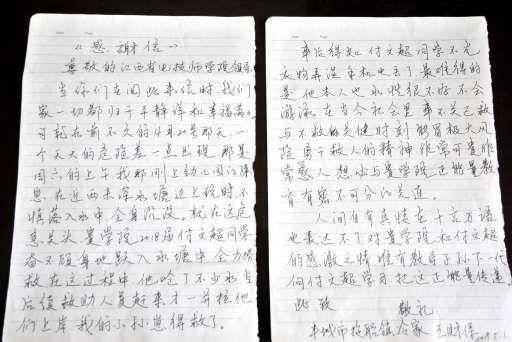 《感谢信》
尊敬的江西省电技师学院领导
当你们在阅此来信时,我们
家一切都归于平静祥和幸福高。
可就在前不久的4月20星那天,一
个天大的危险差一点出现,那是
周六的上午我那刚上幼儿园的孙
息,在近两米深水塘边上路时,不
慎落入水中全身沉没,就在这危
急关头贵学院2018届付文超同学
奋不顾身地跃入水塘中全力搭
救在这过程中,他呛了不少水,当
后续救助人员赶来才一并拖他
们上岸,我的小孙崽得救了。
事后得知付文超同学不光
衣物弄湿手机也丢了,最难得的
是他本人也水性很不好不会
游泳,在当今社会里事不关己救
与不救的关健时刻能冒极大风
险勇于救人的精神非常可贵非
常感人,想必与贵学院正能量教
育有密不可分的关连。
人间自有真情在千言万语
也表达不了对贵学院和付文超
的感激之情,唯有教导子孙下一代
向付文超学习把这正能量传递。
此致
敬礼
丰城市拖船镇 全家 王财保
2019.5.1.